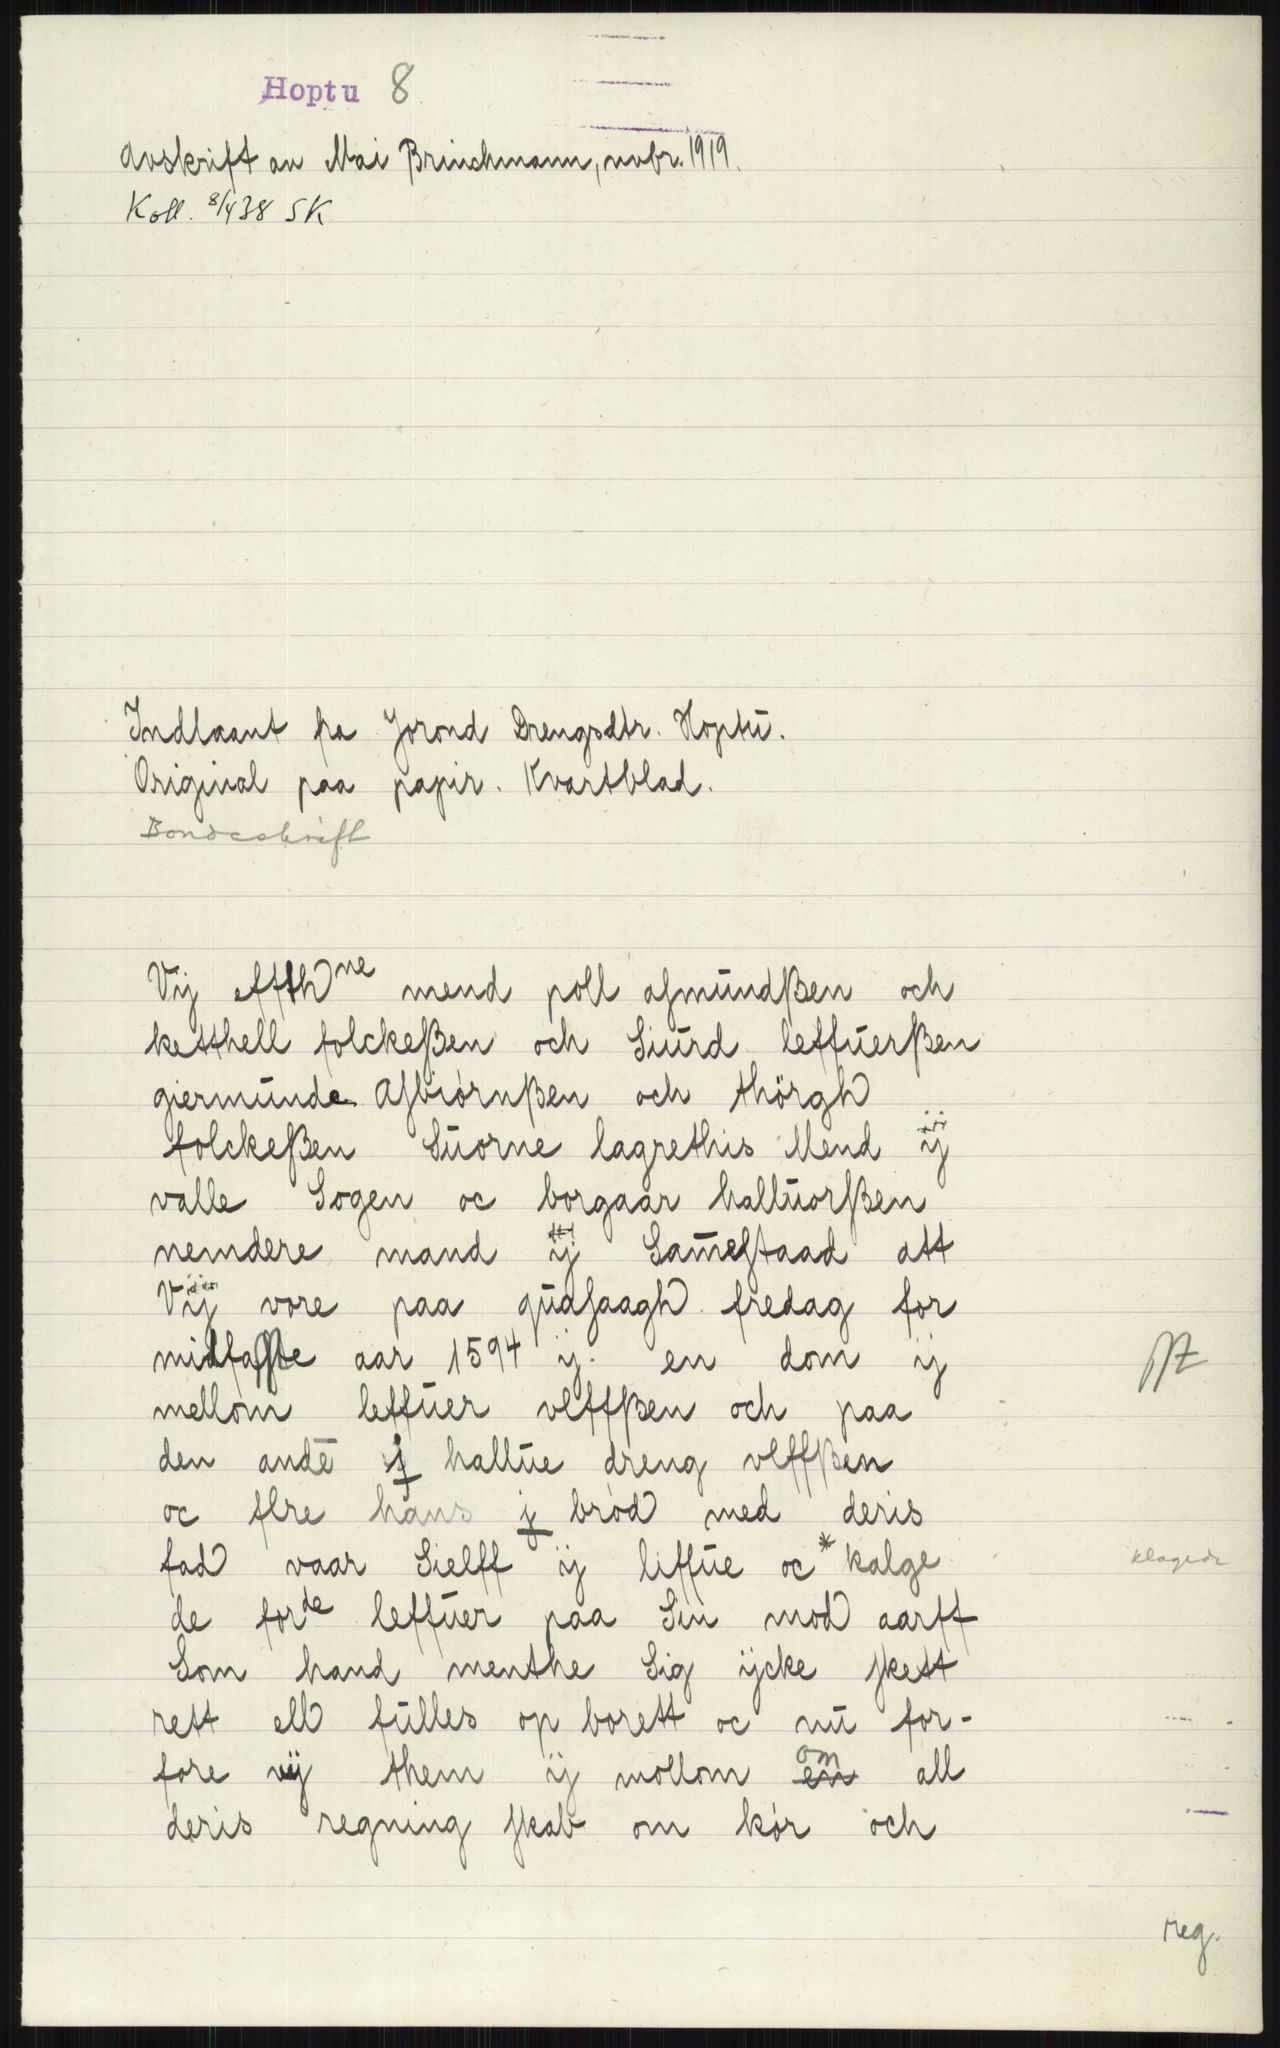 Hoptu 8
Avskrift av Mai Brinchmann, novbr. 1919.
Koll. 8/4 38 SK
Indlaant fra Jorond Drengsdtr. Hoptu.
Original paa papir. Kvartblad.
Bondeskrift
Vij effth ne mend poll asmundßen och
ketthell folckeßen och Siurd leffuerßen
giermunde Asbiørnßen och thörgh
folckeßen Suorne lagrethis Mend ÿ
valle Sogen oc borgaar halluorßen
nemdere mand ÿ Samestaad att
Vÿ vore paa quasaagh fredag for
midfaste aar 1594 ij en dom ij
mellom leffuer vlffßen och paa
den andē j hallue dreng vlffßen
oc flre hans j brød med deris
fad vaar Sielff ij liffue oc * kalge klagede
de for de leffuer paa Sin mod aarff
Som hand menthe Sig ijcke skett
rett ell fulles op borett oc nu for-
fore vij them ij mollom en om all
deris regning skab om kør och
reg.